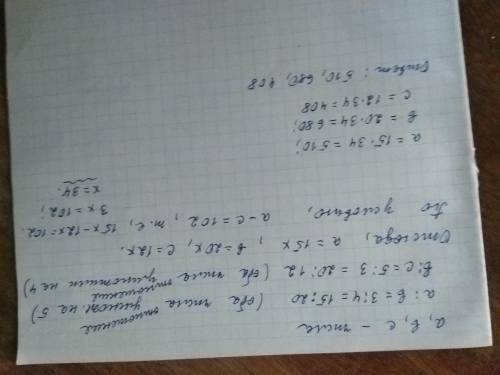 a, b, c – числа
a : b = 3 : 4 = 15 : 20 (оба числа отношения умнож. на 5)
b : c = 5 : 3 = 20 : 12 (оба числа отношения умножили на 4)
Отсюда, a = 15x, b = 20x, c = 12x.
По условию, a - c = 102, т.е. 15x - 12x = 102.
3x = 102;
x = 34.
a = 15·34 = 510;
b = 20·34 = 680;
c = 12·34 = 408
Ответ: 510, 680, 408